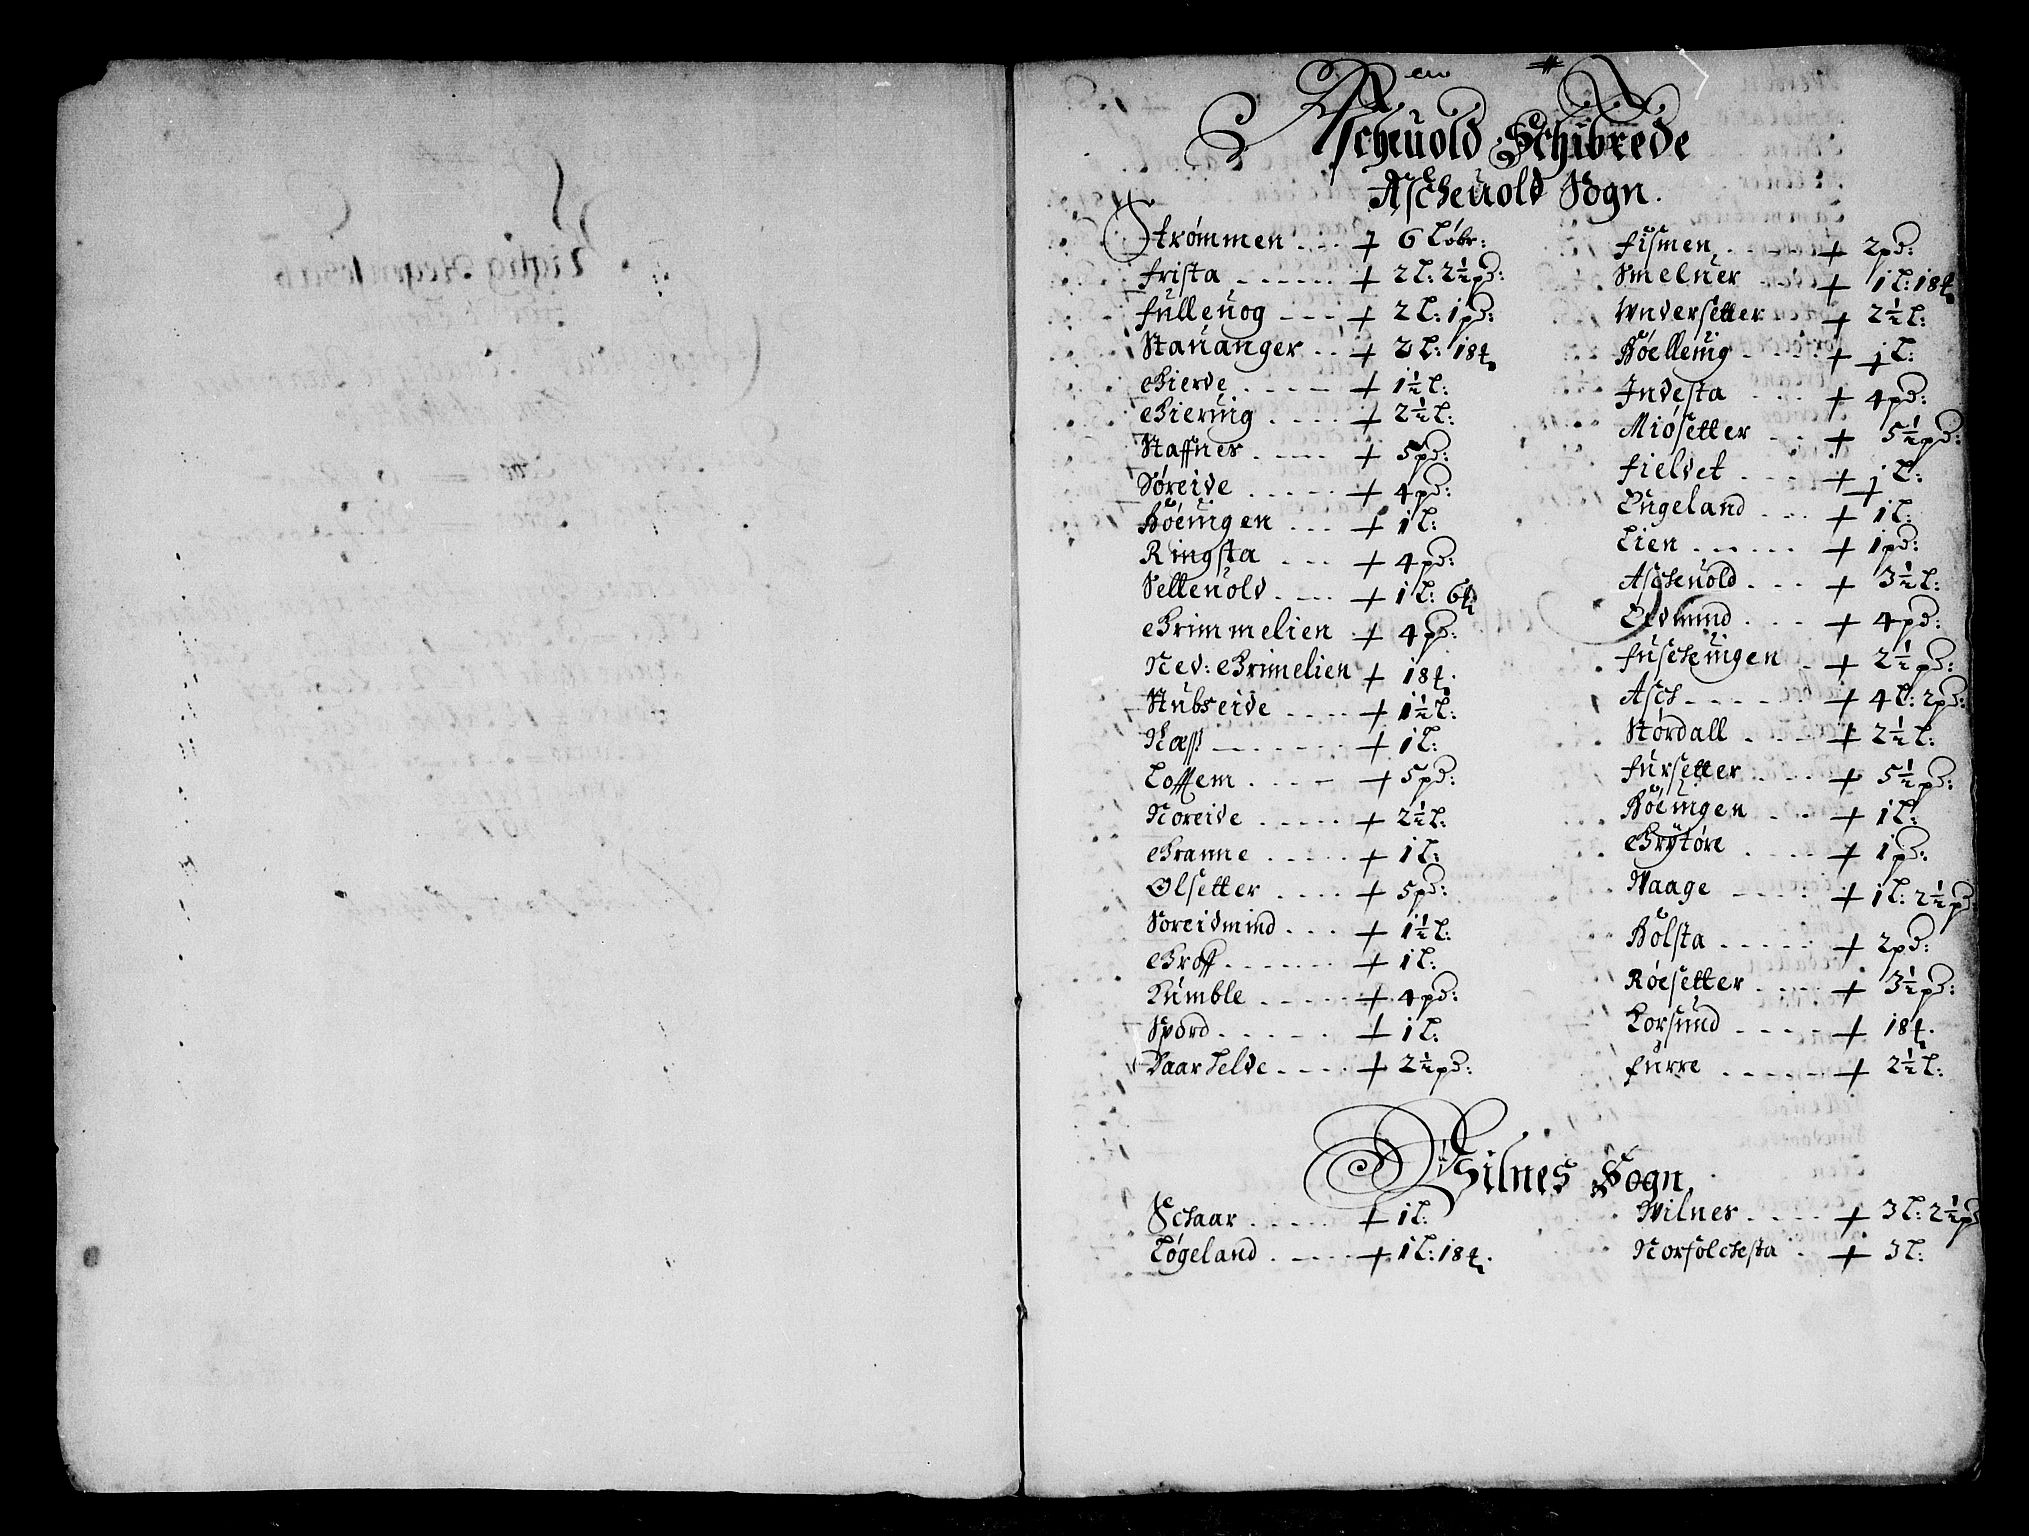 Ascheuold Schibrede
Ascheuold Sogn.
Strømmen .... + 6 Løbr:
Frista ...... + 2 L: 2½ pd:
Fulleuog --- + 2 L: 1 pd:
Stauanger .. + 2 L: 18 ℔
Gierde .---- + 1½ L:
Gieruig .... + 2½ L:
Staffner .---- + 5 pd:
Søreide ..... + 4 pd:
Bøeuigen ... + 1 L:
Ringsta ... + 4 pd:
Selleuold .--- + 1 L: 6 ℔
Grimmelien . + 4 pd:
Ned: Grimelien + 18 ℔.
Stubseide .... + 1½ L:
Næss ------- + 1 L:
Loffem .... + 5 pd:
Noreide ..... + 2½ L:
Granne ..... + 1 L:
Olsetter .... + 5 pd:
Soreidmind ... + 1½ L:
Groff ....... + 1 L:
Kumble ..... + 4 pd:
Spord ...... + 1 L:
Daar Telde .... + 2½ pd:
Fismen ..... + 2 pd:
Smelner ... + 1 L: 18 ℔
Undersetter + 2½ L:
Bøelleuig .... + 1 L:
Indesta ... + 4 pd:
Miøsetter .. + 5½ pd:
Fieldet .... + 1 L:
Engeland ... + 1 L:
Lien ...... + 1 pd:
Ascheuold ... + 3½ L:
Eedmind ... + 4 pd:
Fuscheuigen . + 2½ pd:
Asch ------ + 4 L: 2 pd:
Størdall .... + 2½ L:
Fursetter .... + 5½ pd:
Bøeuigen .. + 1 L:
Grytøre .... + 1 pd:
Waage ---- + 1 L: 2½ pd:
Bølsta ..... + 2 pd:
Røesetter .... + 3½ pd:
Korsund ---- + 18 ℔.
Furre ----- + 2½ L:
Wilnes Sogn.
Schaar ..... + 1 L:
Løgeland ..... + 1 L: 18 ℔.
Wilner .... + 3 L: 2½ pd
Norfolchesta . + 3 L: